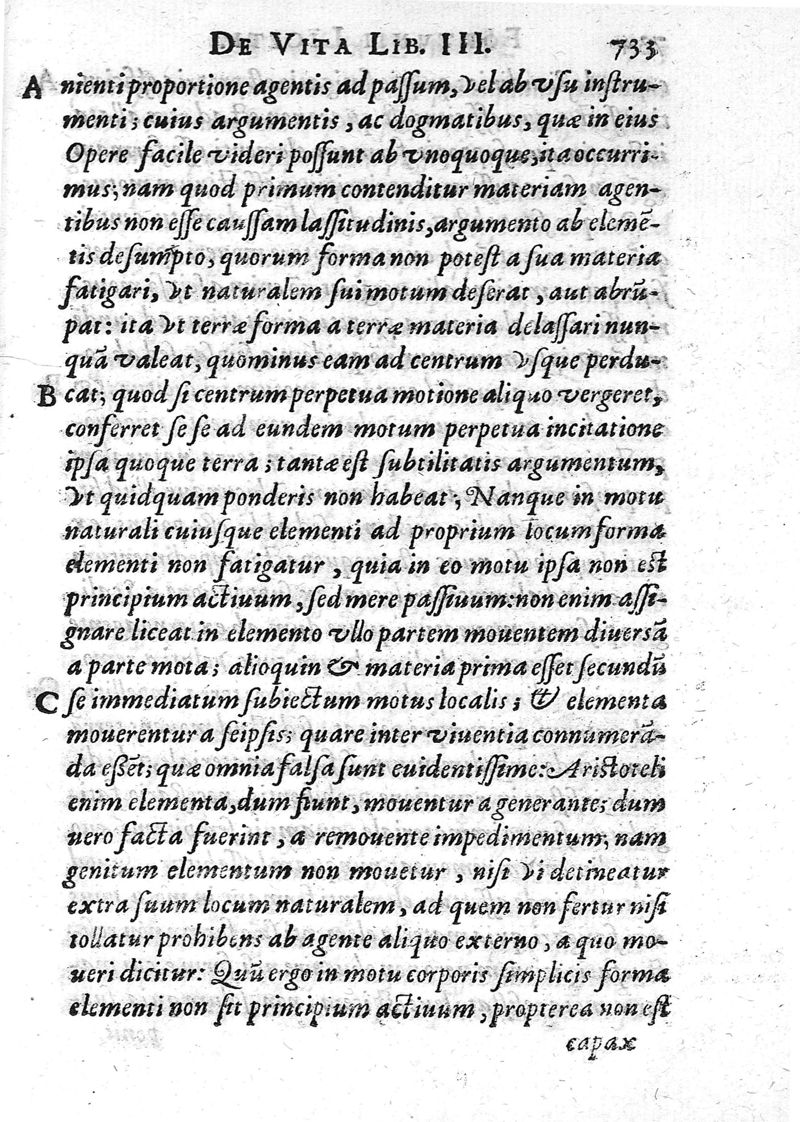 DE VITA LIB. III. 733
A nienti proportione agentis ad paſſum, vel ab vſu inſtru-
menti; cuius argumentis, ac dogmatibus, quæ in eius
Opere facile videri poſſunt ab vnoquoque, ita occurri-
mus; nam quod primum contenditur materiam agen-
tibus non eſſe cauſſam laſſitudinis, argumento ab elemē-
tis deſumpto, quorum forma non poteſt a ſua materia
fatigari, vt naturalem ſui motum deſerat, aut abrū-
pat: ita vt terræ forma a terræ materia delaſſari nun-
quā valeat, quominus eam ad centrum vſque perdu-
B cat; quod ſi centrum perpetua motione aliquo vergeret,
conferret ſe ſe ad eundem motum perpetua incitatione
ipſa quoque terra; tantæ eſt ſubtilitatis argumentum,
vt quidquam ponderis non habeat; Nanque in motu
naturali cuiuſque elementi ad proprium locum forma
elementi non fatigatur, quia in eo motu ipſa non eſt
principium actiuum, ſed mere paſſiuum: non enim aſſi-
gnare liceat in elemento vllo partem mouentem diuersā
a parte mota; alioquin & materia prima eſſet ſecundū
C ſe immediatum ſubiectum motus localis; & elementa
mouerentur a ſeipſis; quare inter viuentia connumerā-
da eſſēt; quæ omnia falſa ſunt euidentiſſime: Ariſtoteli
enim elementa, dum fiunt, mouentur a generante; dum
uero facta fuerint, a remouente impedimentum; nam
genitum elementum non mouetur, niſi vi detineatur
extra ſuum locum naturalem, ad quem non fertur niſi
tollatur prohibens ab agente aliquo externo, a quo mo-
ueri dicitur: Quū ergo in motu corporis ſimplicis forma
elementi non ſit principium actiuum, propterea non eſt
capax